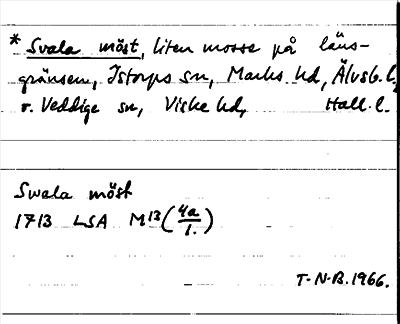 * Svala möst, liten mosse på läns-
gränsen, Istorps sn, Marks hd, Älvsb. l,
v. Veddige sn, Viske hd, Hall. l.
Swala möst
1713 LSA M13 (4a/1.)
T-N-B. 1966.